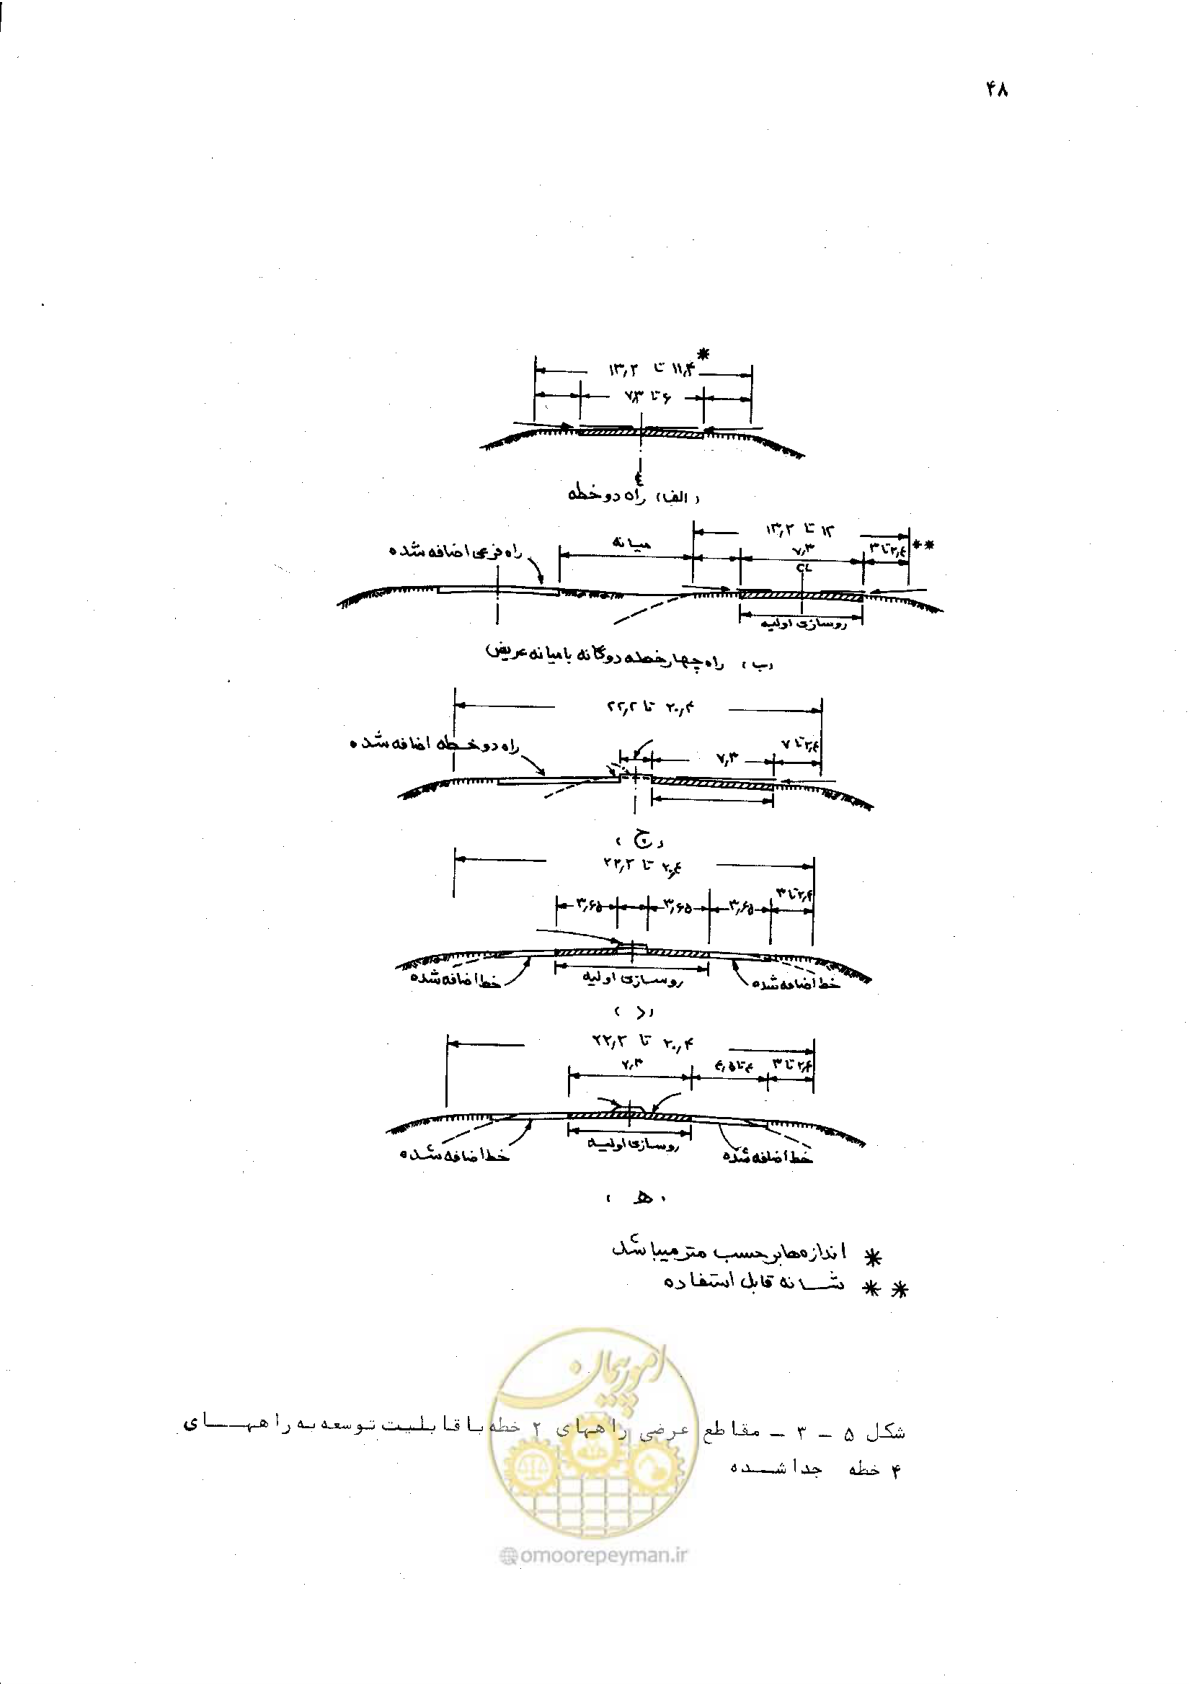 ۴۸
*
۱۱٫۴ تا ۱۳٫۲
۶ تا ۷٫۳
(الف) راه دو خطه
۱۲ تا ۱۳٫۲
**
۲٫۴ تا ۳
۷٫۳
میانه
راه فرعی اضافه شده
CL
روسازی اولیه
(ب) راه چهارخطه دوگانه با میانه عریض
۲۰٫۴ تا ۲۲٫۲
راه دو خطه اضافه شده
۷٫۳
۲٫۴ تا ۷
(ج)
۲۰٫۴ تا ۲۲٫۲
۲٫۴ تا ۳
۳٫۶۵
۳٫۶۵
۳٫۶۵
خط اضافه شده
روسازی اولیه
خط اضافه شده
(د)
۲۰٫۴ تا ۲۲٫۲
۲٫۴ تا ۳
۷٫۳
خط اضافه شده
روسازی اولیه
خط اضافه شده
(ه)
* اندازه‌ها برحسب متر میباشد
** شانه قابل استفاده
امور پیمان
شکل ۵ - ۳ - مقاطع عرضی راههای ۲ خطه با قابلیت توسعه به راههای
۴ خطه جدا شده
@omoorepeyman.ir